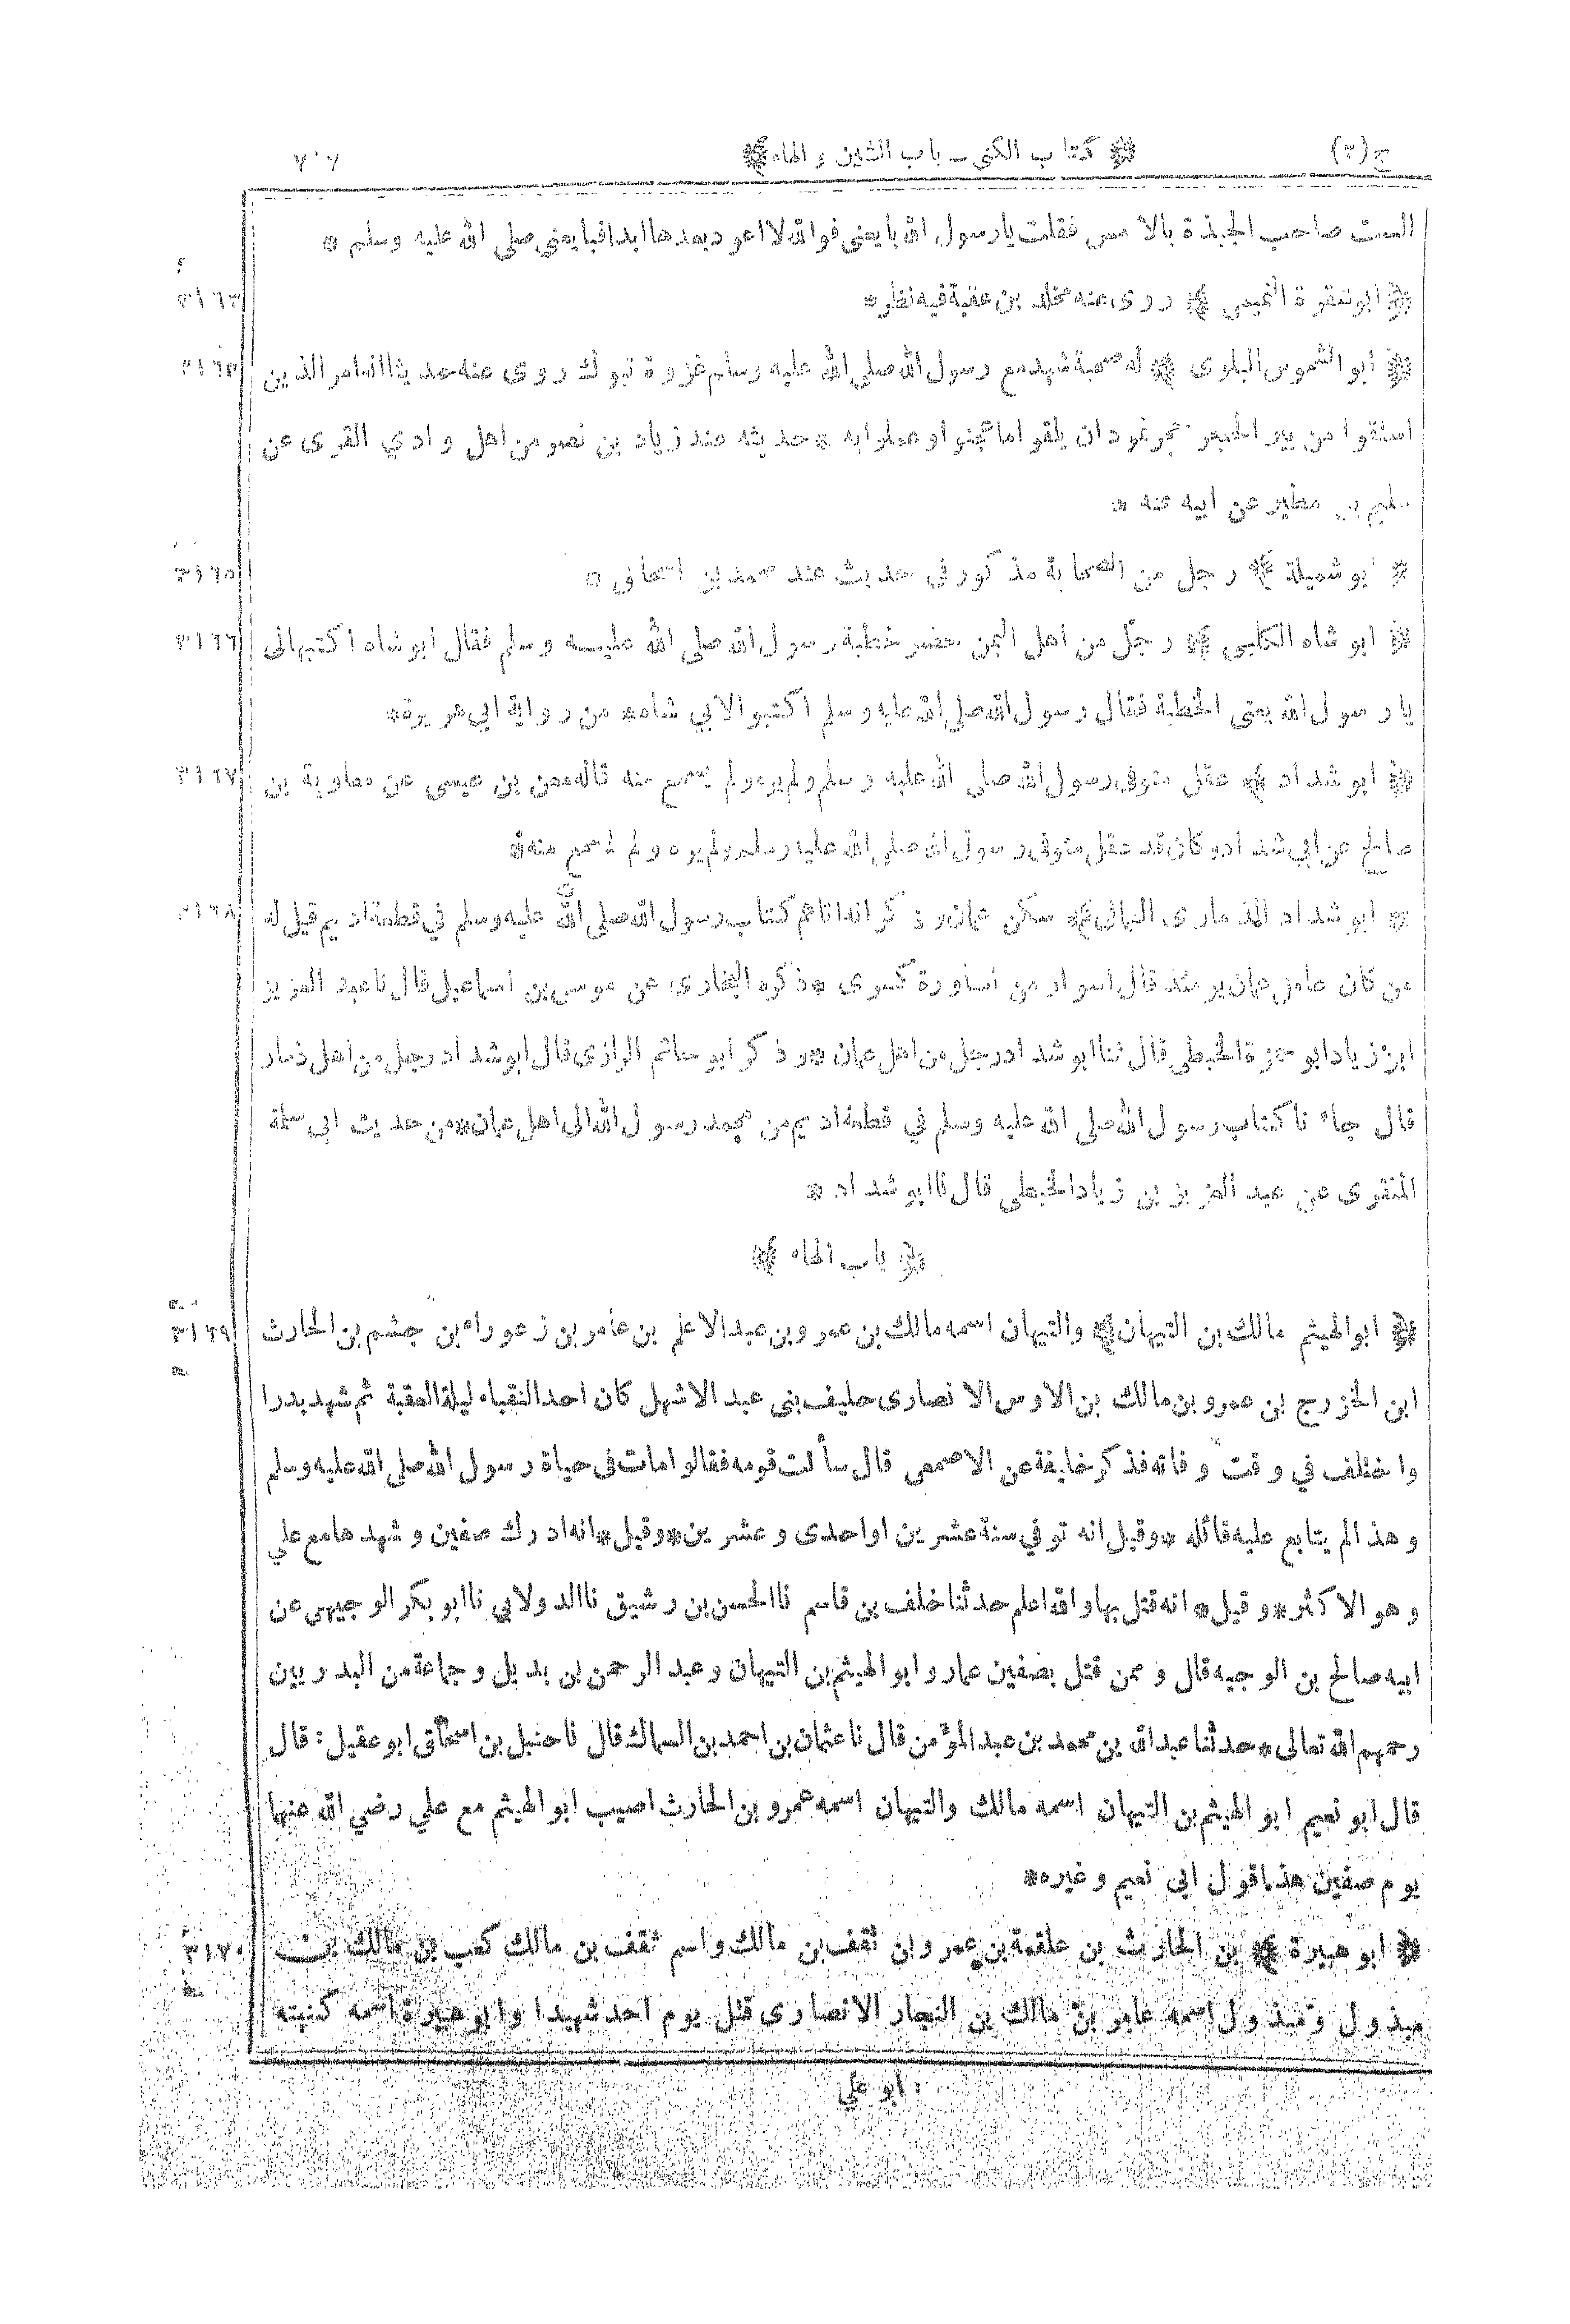 ج(٢) ﴿ كتاب الكنى ـ باب الشين والهاء ﴾ ٧٠٦
الست صاحب الجبذة بالامس فقلت يارسول الله بايعنى فوالله لا اعود بعدها ابدا فبايعنى صلى الله عليه وسلم *
﴿ ابو شقرة التميمى ﴾ روى عنه مخلد بن عقبة فيه نظر * ٣١٦٣
﴿ ابو الشموس البلوى ﴾ له صحبة شهد مع رسول الله صلى الله عليه وسلم غزوة تبوك روى عنه حديثا انه امر الذين ٣١٦٤
استقوا من بير الحجر حجر ثمود ان يلقوا ما عجنوا وعملوا به * حديثه عند زياد بن نصر من اهل وادي القرى عن
سليم بن مطير عن ابيه عنه *
﴿ ابو شميلة ﴾ رجل من الصحابة مذكور في حديث عند محمد بن اسحاق * ٣١٦٥
﴿ ابو شاه الكلبى ﴾ رجل من اهل اليمن حضر خطبة رسول الله صلى الله عليه وسلم فقال ابو شاه اكتبها لى ٣١٦٦
يا رسول الله يعنى الخطبة فقال رسول الله صلى الله عليه وسلم اكتبوا لابي شاه * من رواية ابي هريرة *
﴿ ابو شداد ﴾ عقل متوفى رسول الله صلى الله عليه وسلم ولم يره ولم يسمع منه قاله معن بن عيسى عن معاوية بن ٣١٦٧
صالح عن ابي شداد وكان قد عقل متوفى رسول الله صلى الله عليه وسلم ولم يره ولم يسمع منه *
﴿ ابو شداد الذمارى العمانى ﴾ سكن عمان وذكر انه اتاهم كتاب رسول الله صلى الله عليه وسلم في قطعة اديم قيل له ٣١٦٨
من كان عامل عمان يومئذ قال اسوار من اساورة كسرى * ذكره البخارى عن موسى بن اسماعيل قال نا عبد العزيز
ابن زياد ابو حمزة الحبطى قال ثنا ابو شداد رجل من اهل عمان * وذكر ابو حاتم الرازى قال ابو شداد رجل من اهل ذمار
قال جاء نا كتاب رسول الله صلى الله عليه وسلم في قطعة اديم من محمد رسول الله الى اهل عمان * من حديث ابى سلمة
المنقرى عن عبد العزيز بن زياد الحبطى قال نا ابو شداد *
﴿ باب الهاء ﴾
﴿ ابو الهيثم مالك بن التيهان ﴾ والتيهان اسمه مالك بن عمرو بن عبد الاعلم بن عامر بن زعوراء بن جشم بن الحارث ٣١٦٩
ابن الخزرج بن عمرو بن مالك بن الاوس الانصارى حليف بنى عبد الاشهل كان احد النقباء ليلة العقبة ثم شهد بدرا
واختلف في وقت وفاته فذكر خليفة عن الاصمعى قال سألت قومه فقالوا مات فى حياة رسول الله صلى الله عليه وسلم
وهذا لم يتابع عليه قائله * وقيل انه توفي سنة عشرين او احدى وعشرين * وقيل * انه ادرك صفين وشهدها مع علي
وهو الاكثر * وقيل * انه قتل بها والله اعلم حدثنا خلف بن قاسم نا الحسن بن رشيق نا الدولابي نا ابو بكر الوجيهى عن
ابيه صالح بن الوجيه قال وممن قتل بصفين عمار وابو الهيثم بن التيهان وعبد الرحمن بن بديل وجماعة من البدريين
رحمهم الله تعالى * حدثنا عبد الله بن محمد بن عبد المؤمن قال نا عثمان بن احمد بن السماك قال نا حنبل بن اسحاق ابو عقيل : قال
قال ابو نعيم ابو الهيثم بن التيهان اسمه مالك والتيهان اسمه عمرو بن الحارث اصيب ابو الهيثم مع علي رضي الله عنهما
يوم صفين هذا قول ابى نعيم وغيره *
﴿ ابو هبيرة ﴾ بن الحارث بن علقمة بن عمرو بن ثقف بن مالك واسم ثقف بن مالك كعب بن مالك بن ٣١٧٠
مبذول ومبذول اسمه عامر بن مالك بن النجار الانصارى قتل يوم احد شهيدا وابو هبيرة اسمه كنيته
ابو علي